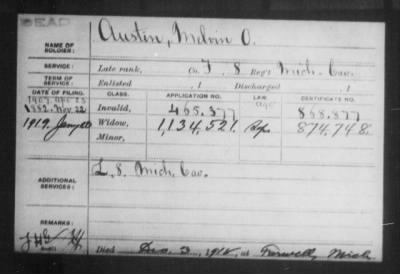 DEAD
NAME OF SOLDIER: Austin, Melvin O.
SERVICE: Late rank, Co. F, 8 Reg't Mich. Cav.
TERM OF SERVICE: Enlisted , 1 Discharged , 1
DATE OF FILING. CLASS. APPLICATION NO. LAW. CERTIFICATE NO.
1907. Apr 23 Age
1882. Nov. 22 Invalid, 465.377
1919. Widow, 1,134,521. 874,748.
Minor,
ADDITIONAL SERVICES: L, 8. Mich. Cav.
REMARKS:
Died Dec. 3, 1918, at Farwell, Mich.